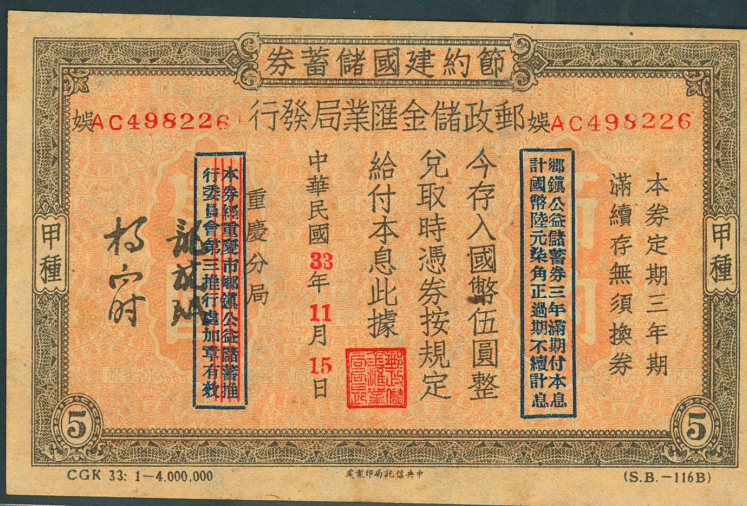 節約建國儲蓄券
郵政儲金匯業局發行
娛AC498226
娛AC498226
甲種
本券定期三年期
滿續存無須換券
鄉鎮公益儲蓄券三年滿期付本息
計國幣陸元柒角正過期不續計息
今存入國幣伍圓整
兌取時憑券按規定
給付本息此據
中華民國33年11月15日
重慶分局
本券經重慶市鄉鎮公益儲蓄推
行委員會第三推行處加章有效
甲種
5
5
CGK 33: 1—4.000.000
中央信託局印製處
(S.B.—116B)